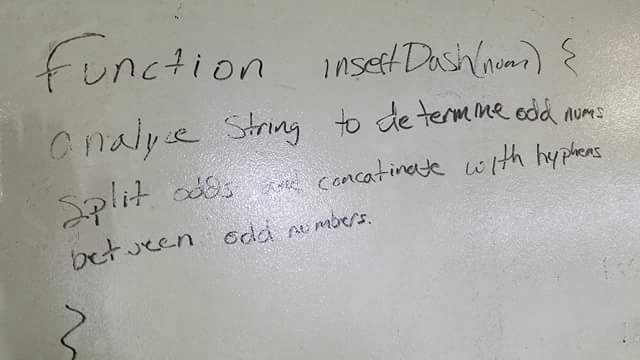 Function insertDash(num) {
analyse String to determine odd nums
Split odds and concatinate with hyphens
between odd numbers.
}